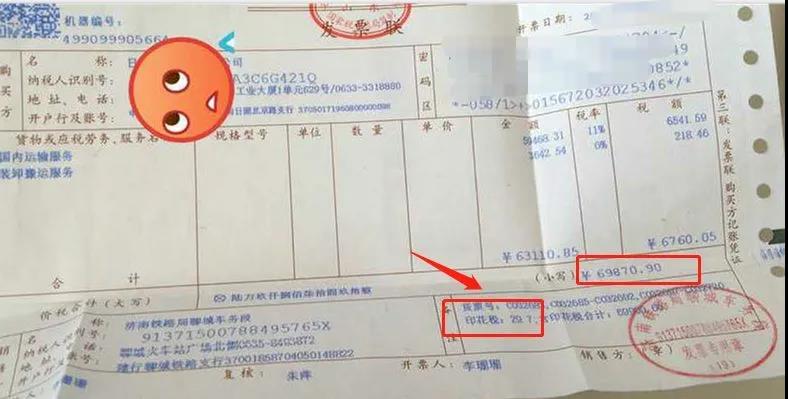 机器编号:
499099905664
发票联
开票日期:
购买方
名 称:
公司
纳税人识别号:
A3C6G421Q
地 址、电 话:
工业大厦1单元629号/0633-3318880
开户行及账号:
日照北京路支行 37050171960800000098
密码区
49
0852*
*-U58/1>
015672032025346*/*
货物或应税劳务、服务名称 规格型号 单位 数量 单价 金额 税率 税额
国内运输服务 11% 6541.59
装卸搬运服务 3642.54 218.46
合计 ¥63110.85 ¥6760.05
价税合计(大写) 陆万玖仟捌佰柒拾圆玖角整 (小写) ¥69870.90
济南铁路局聊城车务段
91371500788495765X
聊城火车站广场北侧0635-8493872
建行聊城铁路支行37001858704050148822
货票号:
印花税: 29.7
印花税合计:
复核: 朱萍 开票人: 李珊珊 销售方:(章)
第三联:发票联 购买方记账凭证
91371500788495765X
发票专用章
(19)